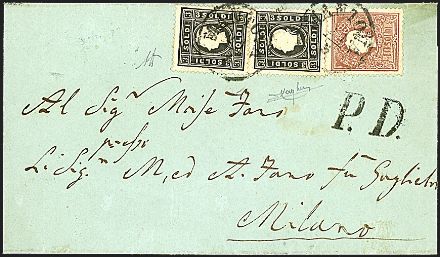 SOLDI SOLDI 10 SOLDI
P.D.
Al Sig.r Moise Fano
presso
Li Sig.ri M. ed A. Fano fu Guglielmo
Milano